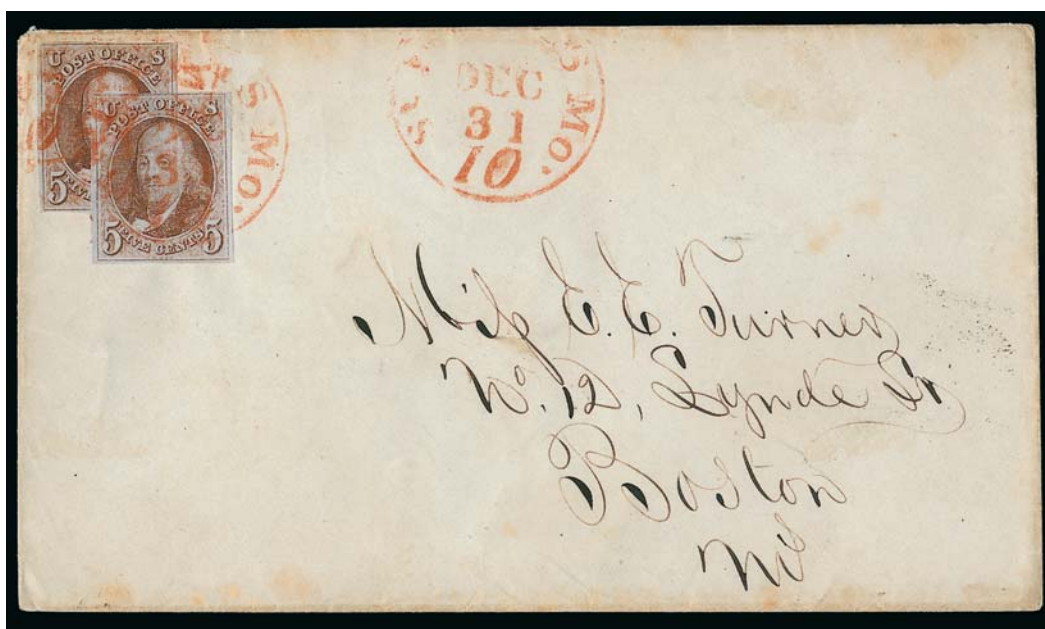 U S
POST OFFICE
5
U S
POST OFFICE
5 FIVE CENTS 5
S Mo.
S Mo.
DEC
31
10
Miſs E. E. Turner
No. 12, Lynde St.
Boston